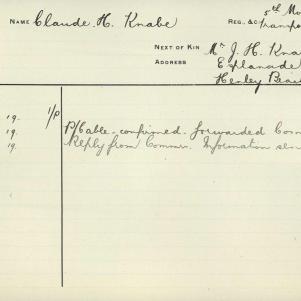 NAME Claude. H. Knabe
REG. &C. 5th Mo
Transpo
NEXT OF KIN Mr J. H. Kna
ADDRESS Esplanade
Henley Bea
19. 1/P P/Cable confirmed. forwarded Com
19. Reply from Commr. Information sen
19.